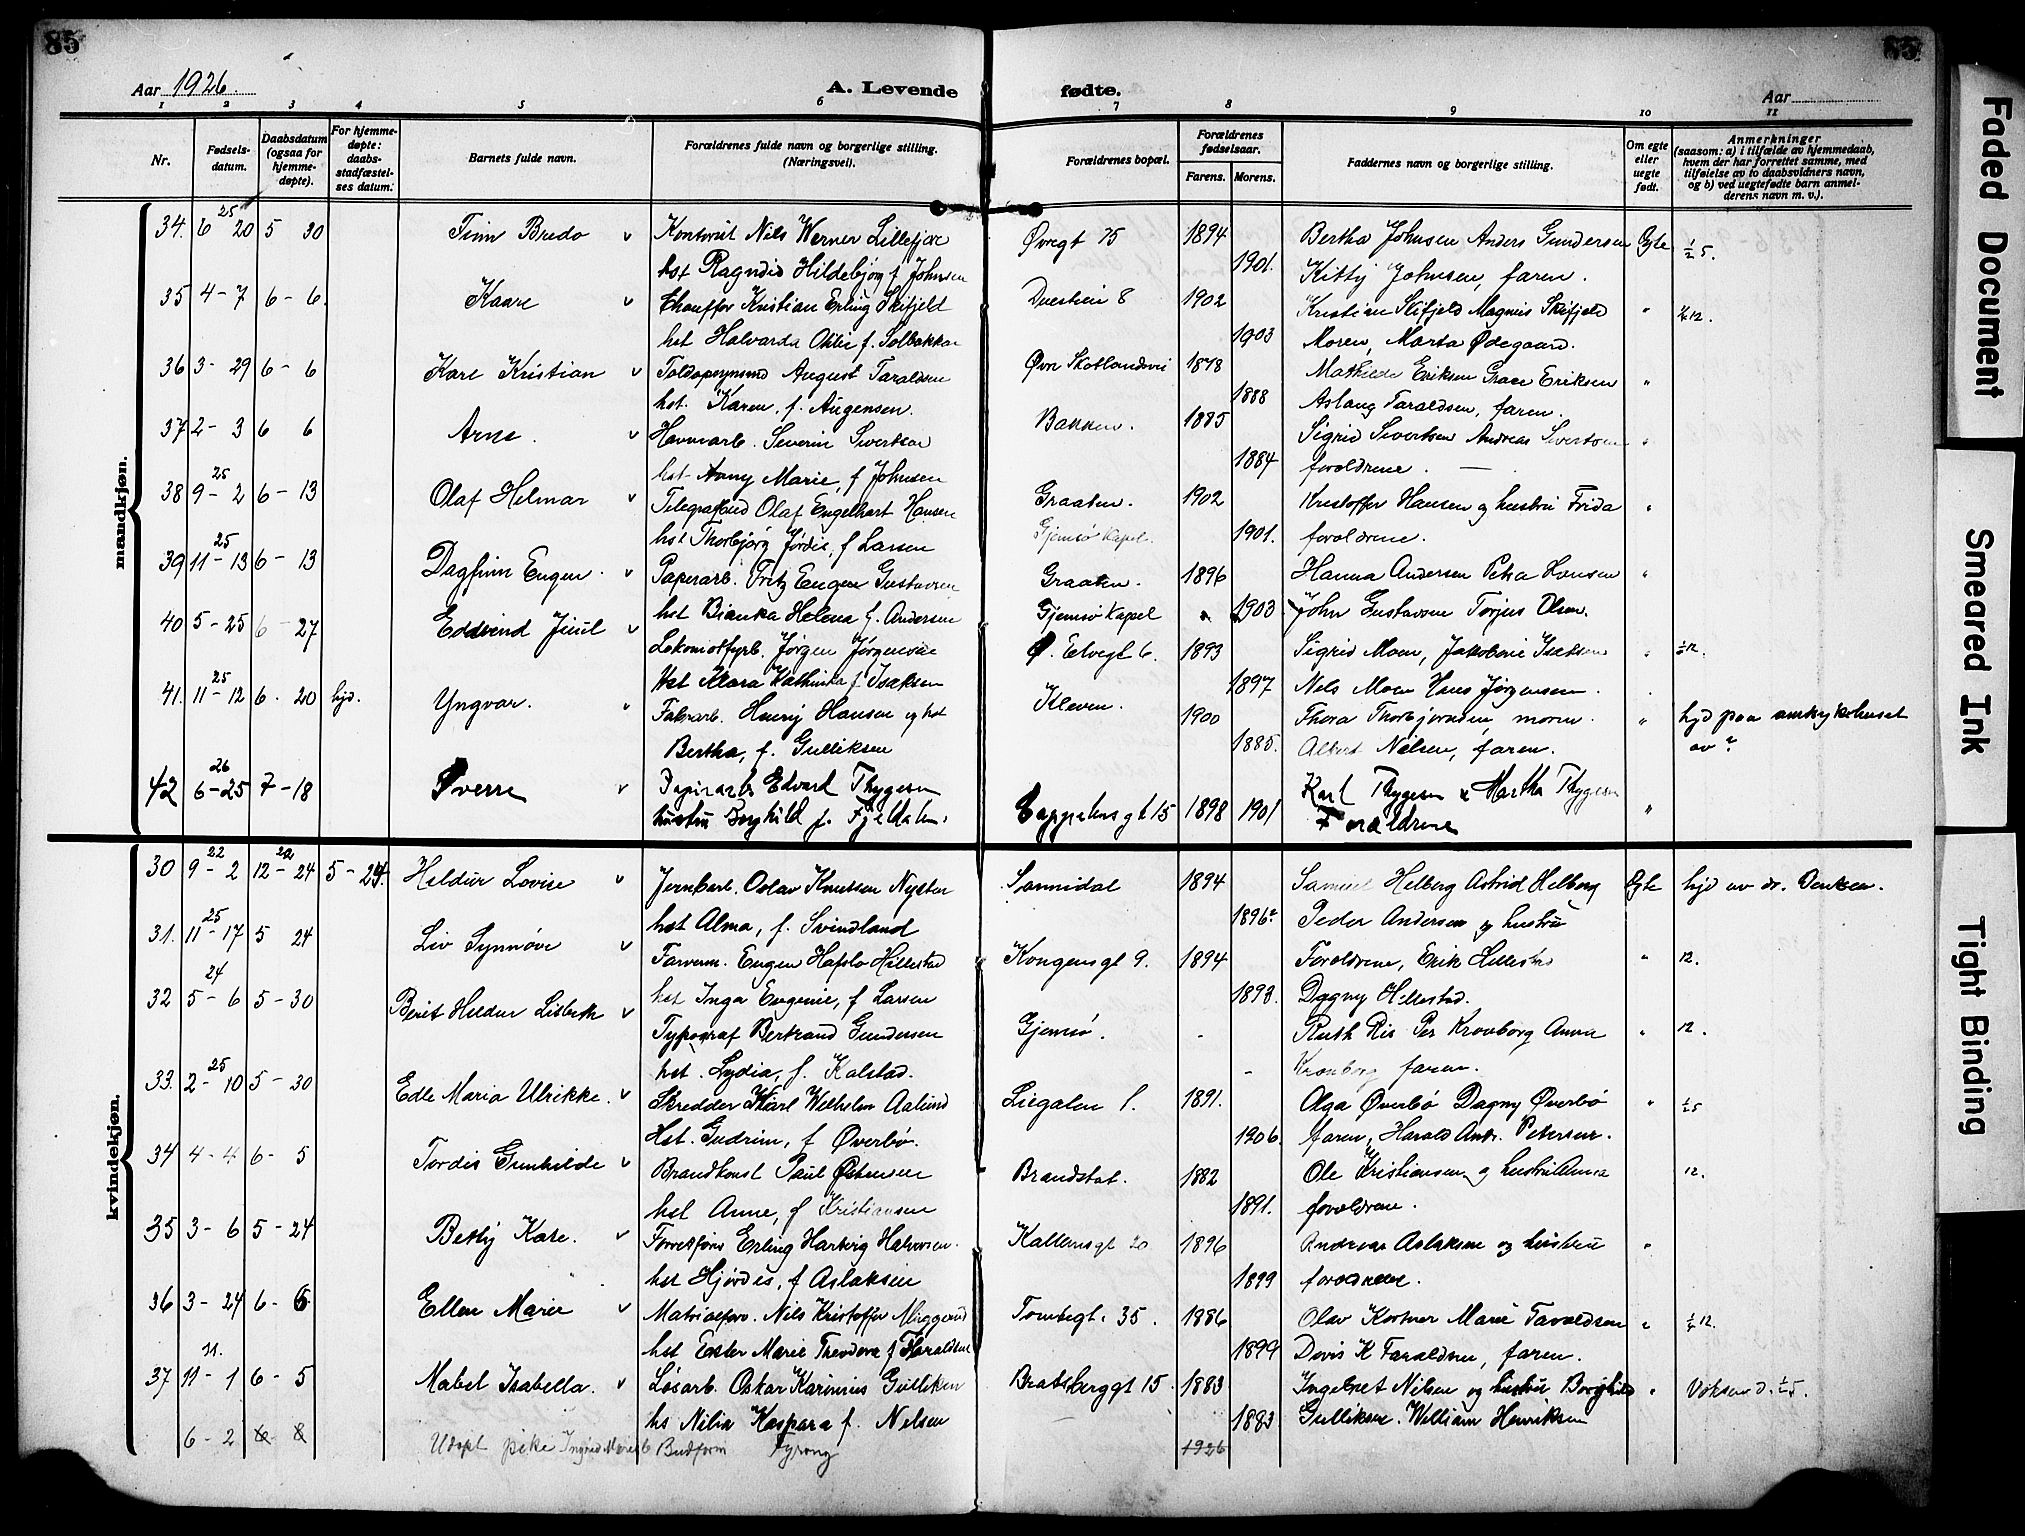 85
85
Aar 1926.
A. Levende fødte.
Aar
1 2 3 4 5 6 7 8 9 10 11
Nr.
Fødsels-datum.
Daabsdatum (ogsaa for hjemme-døpte).
For hjemme-døpte: daabs-stadfæstel-ses datum.
Barnets fulde navn.
Forældrenes fulde navn og borgerlige stilling. (Næringsvei).
Forældrenes bopæl.
Forældrenes fødselsaar.
Farens. Morens.
Faddernes navn og borgerlige stilling.
Om egte eller uegte født.
Anmerkninger (saasom: a) i tilfælde av hjemmedaab, hvem der har forrettet samme, med tilføielse av to daabsvidners navn, og b) ved uegtefødte barn anmel-derens navn m. v.).
mandkjøn.
34. 6 25 20 5 30 Finn Bredo v Kontorist Nils Werner Lillefjære Øvregt 75 1894 Bertha Johnsen Anders Gundersen Egte
hst Ragndid Hildebjørg f Johnsen 1901. Kitty Johnsen, faren.
35 4-7 6-6. Kaare v Chauffør Kristian Erling Skifjeld Duestien 8 1902 Kristian Skifjeld Magnus Skifjeld "
hst Halvarda Otilie f. Solbakken 1903 Moren, Marta Ødegaard.
36 3-29 6-6 Karl Kristian v August Taraldsen Øvre Skotlandsvei 1878 Mathilde Eriksen Grace Eriksen "
hst. Karen, f. Augensen. 1888 Aslaug Taraldsen, faren.
37 2-3 6 6 Arne. v Havnarb. Severin Sivertsen Bakken. 1885 Sigrid Sivertsen Andreas Sivertsen "
hst Anny Marie, f Johnsen 1884 foreldrene.
38 9-25 2 6-13 Olaf Helmar v Olaf Engelhart Hansen Graaten. 1902 Kristoffer Hansen og hustru Frida "
hst Thorbjørg Jordis, f Larsen Gjemsø Kapel. 1901. foreldrene.
39 11-25 13 6-13 Dagfinn Eugen. v Papirarb. Fritz Eugen Gustavsen Graaten. 1896 Hanna Andersen Petra Hansen "
hst Bianka Helena f. Andersen Gjemsø Kapel 1903 John Gustavsen Torjus Olsen.
40 5-25 6-27 Edevind Juul v Lokomotfyrb. Jørgen Jørgensen Ø. Elvegt 6. 1893 Sigrid Moen, Jakobine Isaksen "
Hst Klara Kathinka f Isaksen 1897 Nils Moen Hans Jørgensen.
41. 11-25 12 6. 20 hjd. Yngvar. Fabrarb. Henry Hansen og hst Kleven. 1900 Thora Thorbjørnsen, moren. " hjd paa amtsykehuset
Bertha, f. Gulliksen 1885. Albert Nilsen, faren. av ?
42 6-26 25 7-18 Sverre v Papirarb Edvard Thygesen Cappelens gt 15 1898 1901 Karl Thygesen & Martha Thygesen "
hustru Borghild f. Fjeldalen. Forældrene
kvindekjøn.
30 9-22 2 12-22 24 5-24. Hildur Lovise v Jernbarb. Oslav Knutsen Nyster Sannidal 1894 Samuel Helberg Astrid Helberg Egte hjd av dr.
hst Alma, f. Svindland 1896? Peder Andersen og hustru
31. 11-25 17 5 24 Liv Synnøve v Farverm. Eugen Hafslo Hillestad Kongensgt 9. 1894 Foreldrene, Erik Hillestad " 12.
hst Inga Eugenie, f Larsen 1893. Dagny Hillestad.
32 5-24 6 5-30 Berit Hildur Lisbeth v Typograf Bertrand Gundersen Gjemsø. - Ruth Ris Per Kronborg Anna " 12.
hst. Lydia, f. Kalstad. - Kronborg faren.
33. 2-25 10 5-30 Edle Maria Ulrikke. v Skredder Karl Wilhelm Aalund Liegaten 1. 1891. Olga Øverbø Dagny Øverbø "
Hst. Gudrun, f Øverbø. 1906. faren, Harald Andr. Petersen.
34 4-4 6-5 Tordis Gunhilde v Brandkonst Paul Østensen Brandstat. 1882 Ole Kristiansen og hustru Anna 12.
hst Anne, f Kristiansen 1891. foreldrene.
35 3-6 5-24 Betty Kare. v Erling Hartvig Halvorsen. Kallemsgt 20 1896 Andreas Aslaksen og hustru "
hst Hjørdis, f Aslaksen 1899 foreldrene.
36 3-24 6-6 Ellen Marie v Nils Kristoffer Tomtegt. 35. 1886 Olav Kortner Marie Taraldsen "
hst Ester Marie Theodora f Taraldsen 1899 Dovis K Taraldsen, faren.
37 11-11. 1 6-5 Mabel Isabella. v Løsarb. Oskar Karinius Gulliksen Bratsberggt 15. 1883 Nilsen og hustru Borghild "
hs Nilia Kaspara f. Nilsen 1883 Gulliksen. William Henriksen
6-2 6-8 Udøpt pike Budform 1926
Faded Document
Smeared Ink
Tight Binding